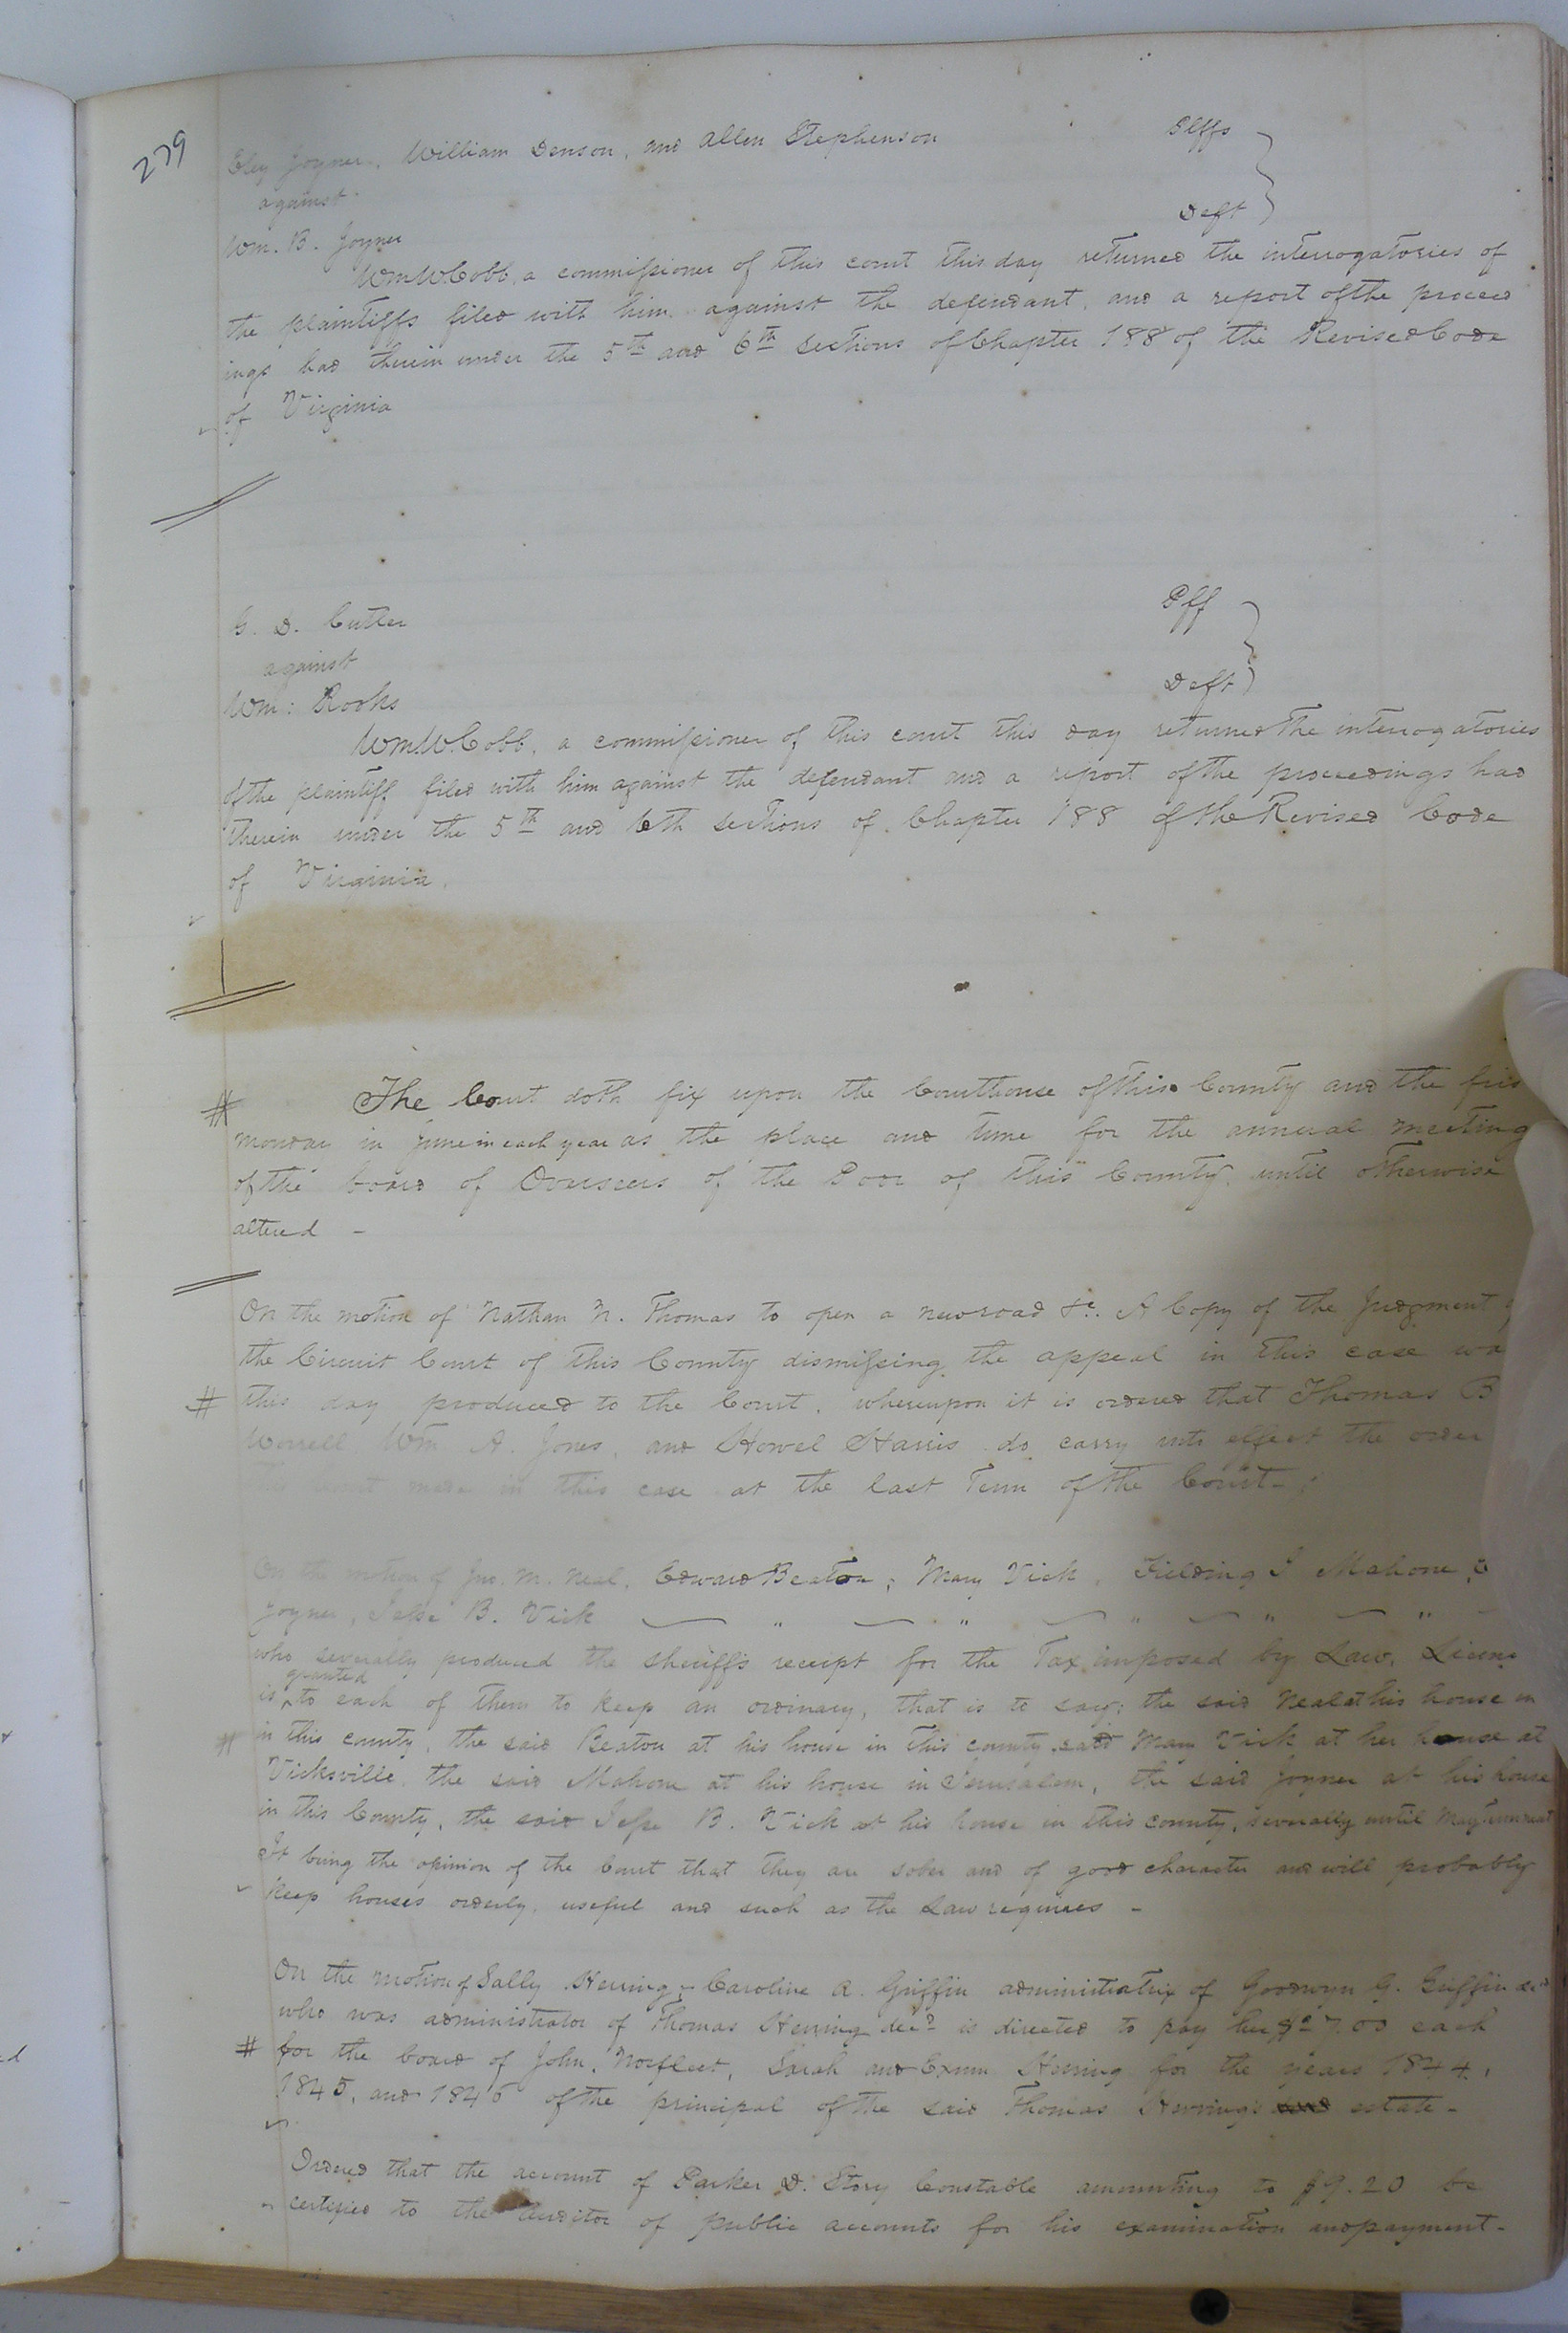 279
Eley Joyner, William Denson, and Allen Stephenson Plffs
against
Deft
Wm. B. Joyner
WmW.Cobb, a commissioner of this court this day returned the interrogatories of
the plaintiffs filed with him against the defendant, and a report of the proceed
ings had therein under the 5th and 6th sections of Chapter 188 of the Revised Code
of Virginia
G. D. Cutler Plff
against
Deft
Wm: Rooks
WmW.Cobb, a commissioner of this court this day returned the interrogatories
of the plaintiff filed with him against the defendant and a report of the proceedings had
therein under the 5th and 6th sections of Chapter 188 of the Revised Code
of Virginia.
# The Court doth fix upon the Courthouse of this County and the firs
monday in June in each year as the place and time for the annual meeting
of the board of Overseers of the Poor of this County, until otherwise
altered -
On the motion of Nathan N. Thomas to open a new road &c. A Copy of the Judgment
the Circuit Court of this County dismissing the appeal in this case wa
# this day produced to the Court, whereupon it is ordered that Thomas B
Worrell Wm A. Jones, and Howel Harris do carry into effect the order
this court made in this case at the last Term of the Court -
On the motion of Jno. M. Neal, Edward Beaton, Mary Vick, Fielding J Mahone,
Joyner, Jesse B. Vick " " " "
who severally produced the sheriffs receipt for the Tax imposed by Law, Licens
granted
is ^ to each of them to keep an ordinary, that is to say; the said Neal at his house in
# in this county, the said Beaton at his house in this county said Mary Vick at her house at
Vicksville, the said Mahone at his house in Jerusalem, the said Joyner at his house
in this County, the said Jesse B. Vick at his house in this county, severally until May Term next
It being the opinion of the Court that they are sober and of good character and will probably
keep houses orderly, useful and such as the Law requires -
On the motion of Sally Herring; Caroline A. Griffin administratrix of Goodwyn G. Griffin decd
who was administrator of Thomas Herring decd is directed to pay her 7.00 each
# for the board of John, Norfleet, Sarah and Exum Herring for the years 1844,
1845, and 1846 of the principal of the said Thomas Herring's estate -
Ordered that the account of Parker D. Story Constable amounting to $9.20 be
certified to the Auditor of public accounts for his examination and payment -